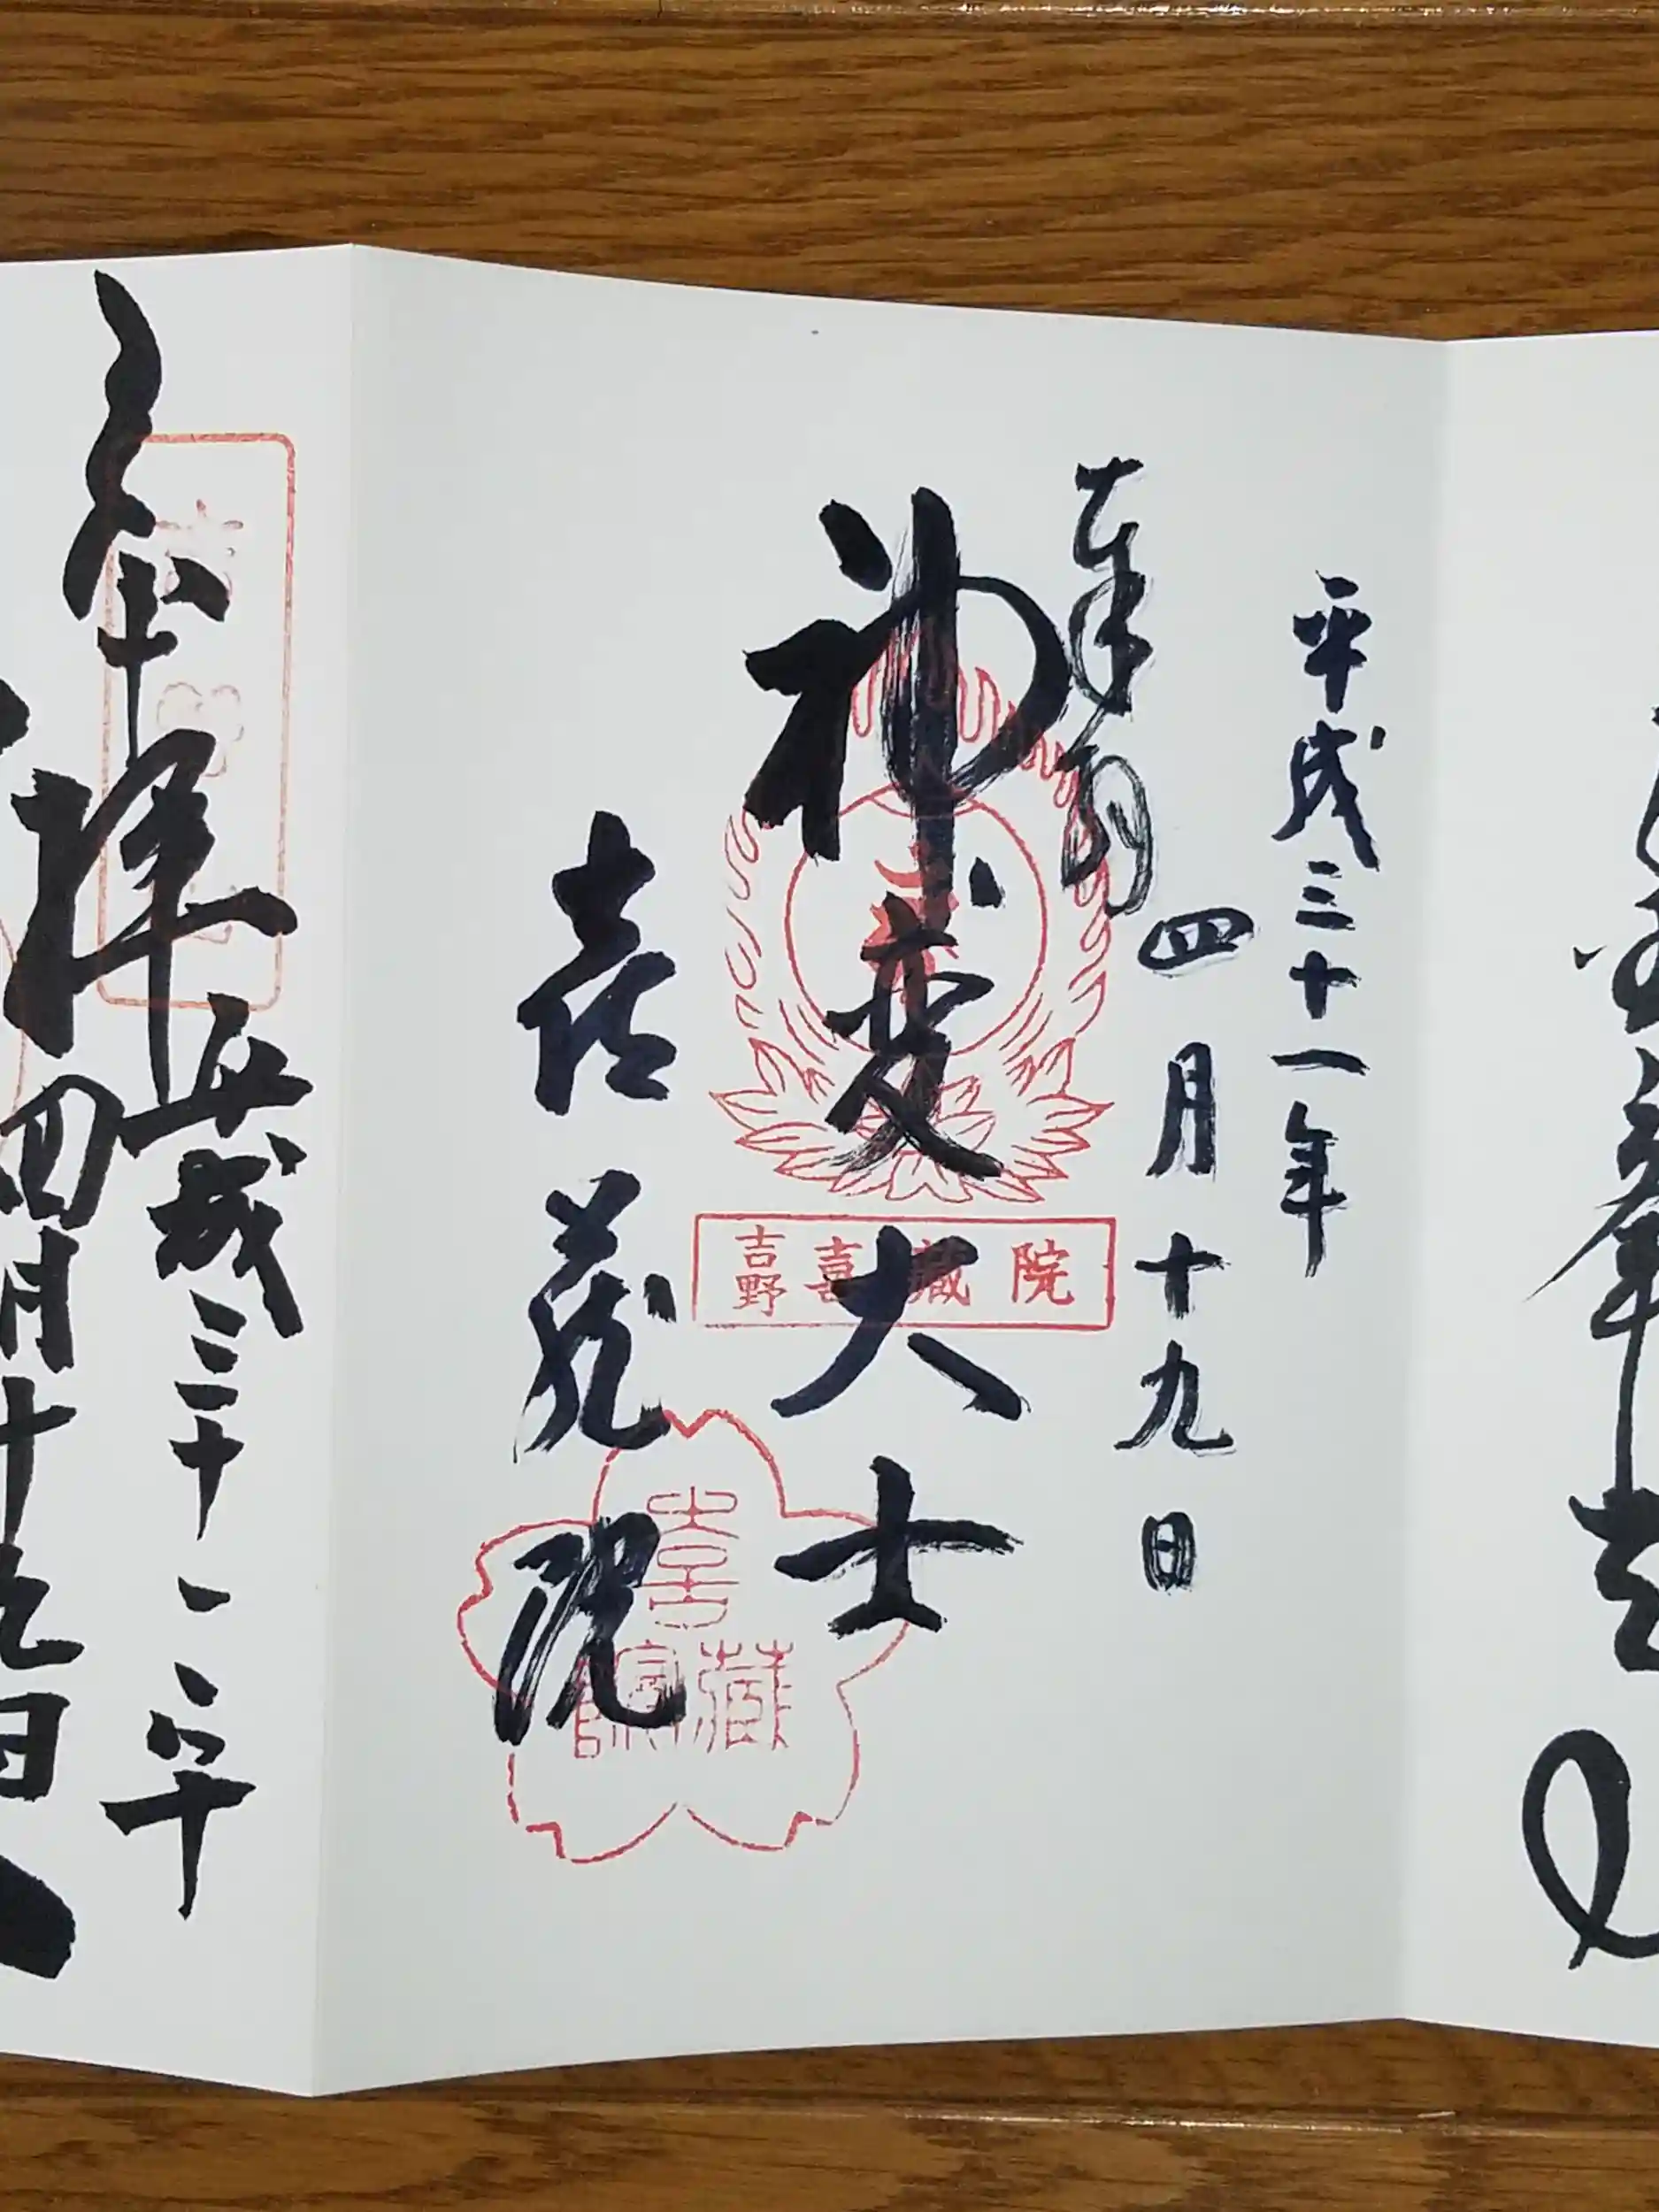 平成三十一年
四月十九日
奉拝
神変大士
吉野喜蔵院
喜蔵院
喜蔵院
奉拝
平成三十一年
四月十九日